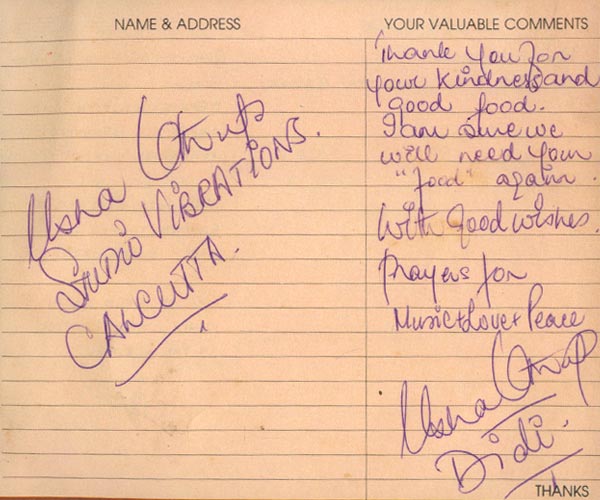 NAME & ADDRESS
YOUR VALUABLE COMMENTS
Usha Uthup
STUDIO VIBRATIONS.
CALCUTTA.
Thank you for
your kindness and
good food.
I am sure we
will need your
"food" again.
With Good wishes.
Prayers for
Music+Love+Peace
Usha Uthup
Didi.
THANKS